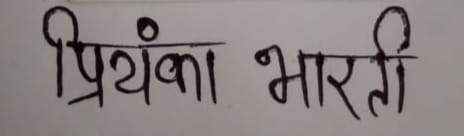 प्रियंका भारती